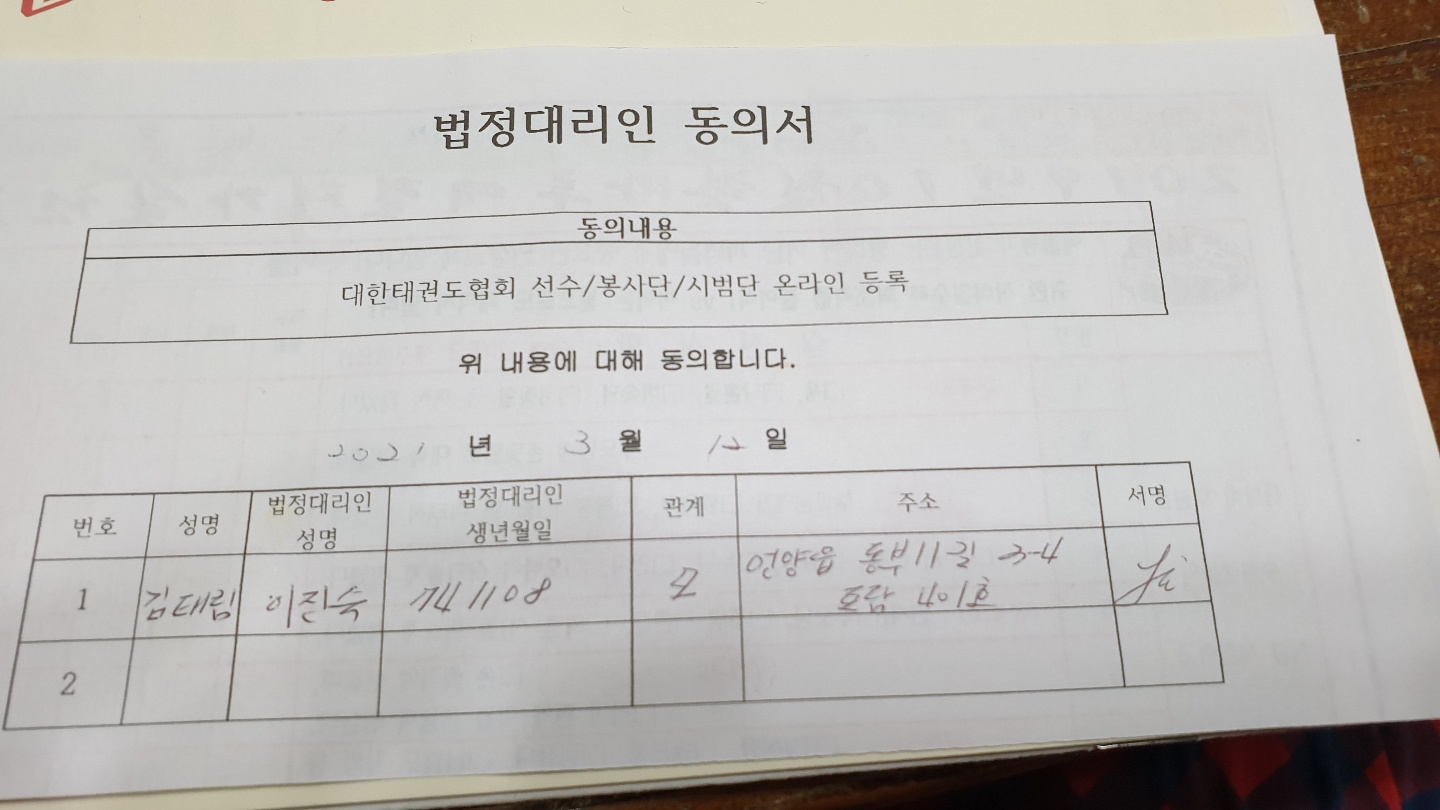 법정대리인 동의서
동의내용
대한태권도협회 선수/봉사단/시범단 온라인 등록
위 내용에 대해 동의합니다.
2021 년 3 월 12 일
번호 성명 법정대리인 성명 법정대리인 생년월일 관계 주소 서명
1 김태림 이진숙 741108 모 언양읍 동부11길 3-4
호람
2